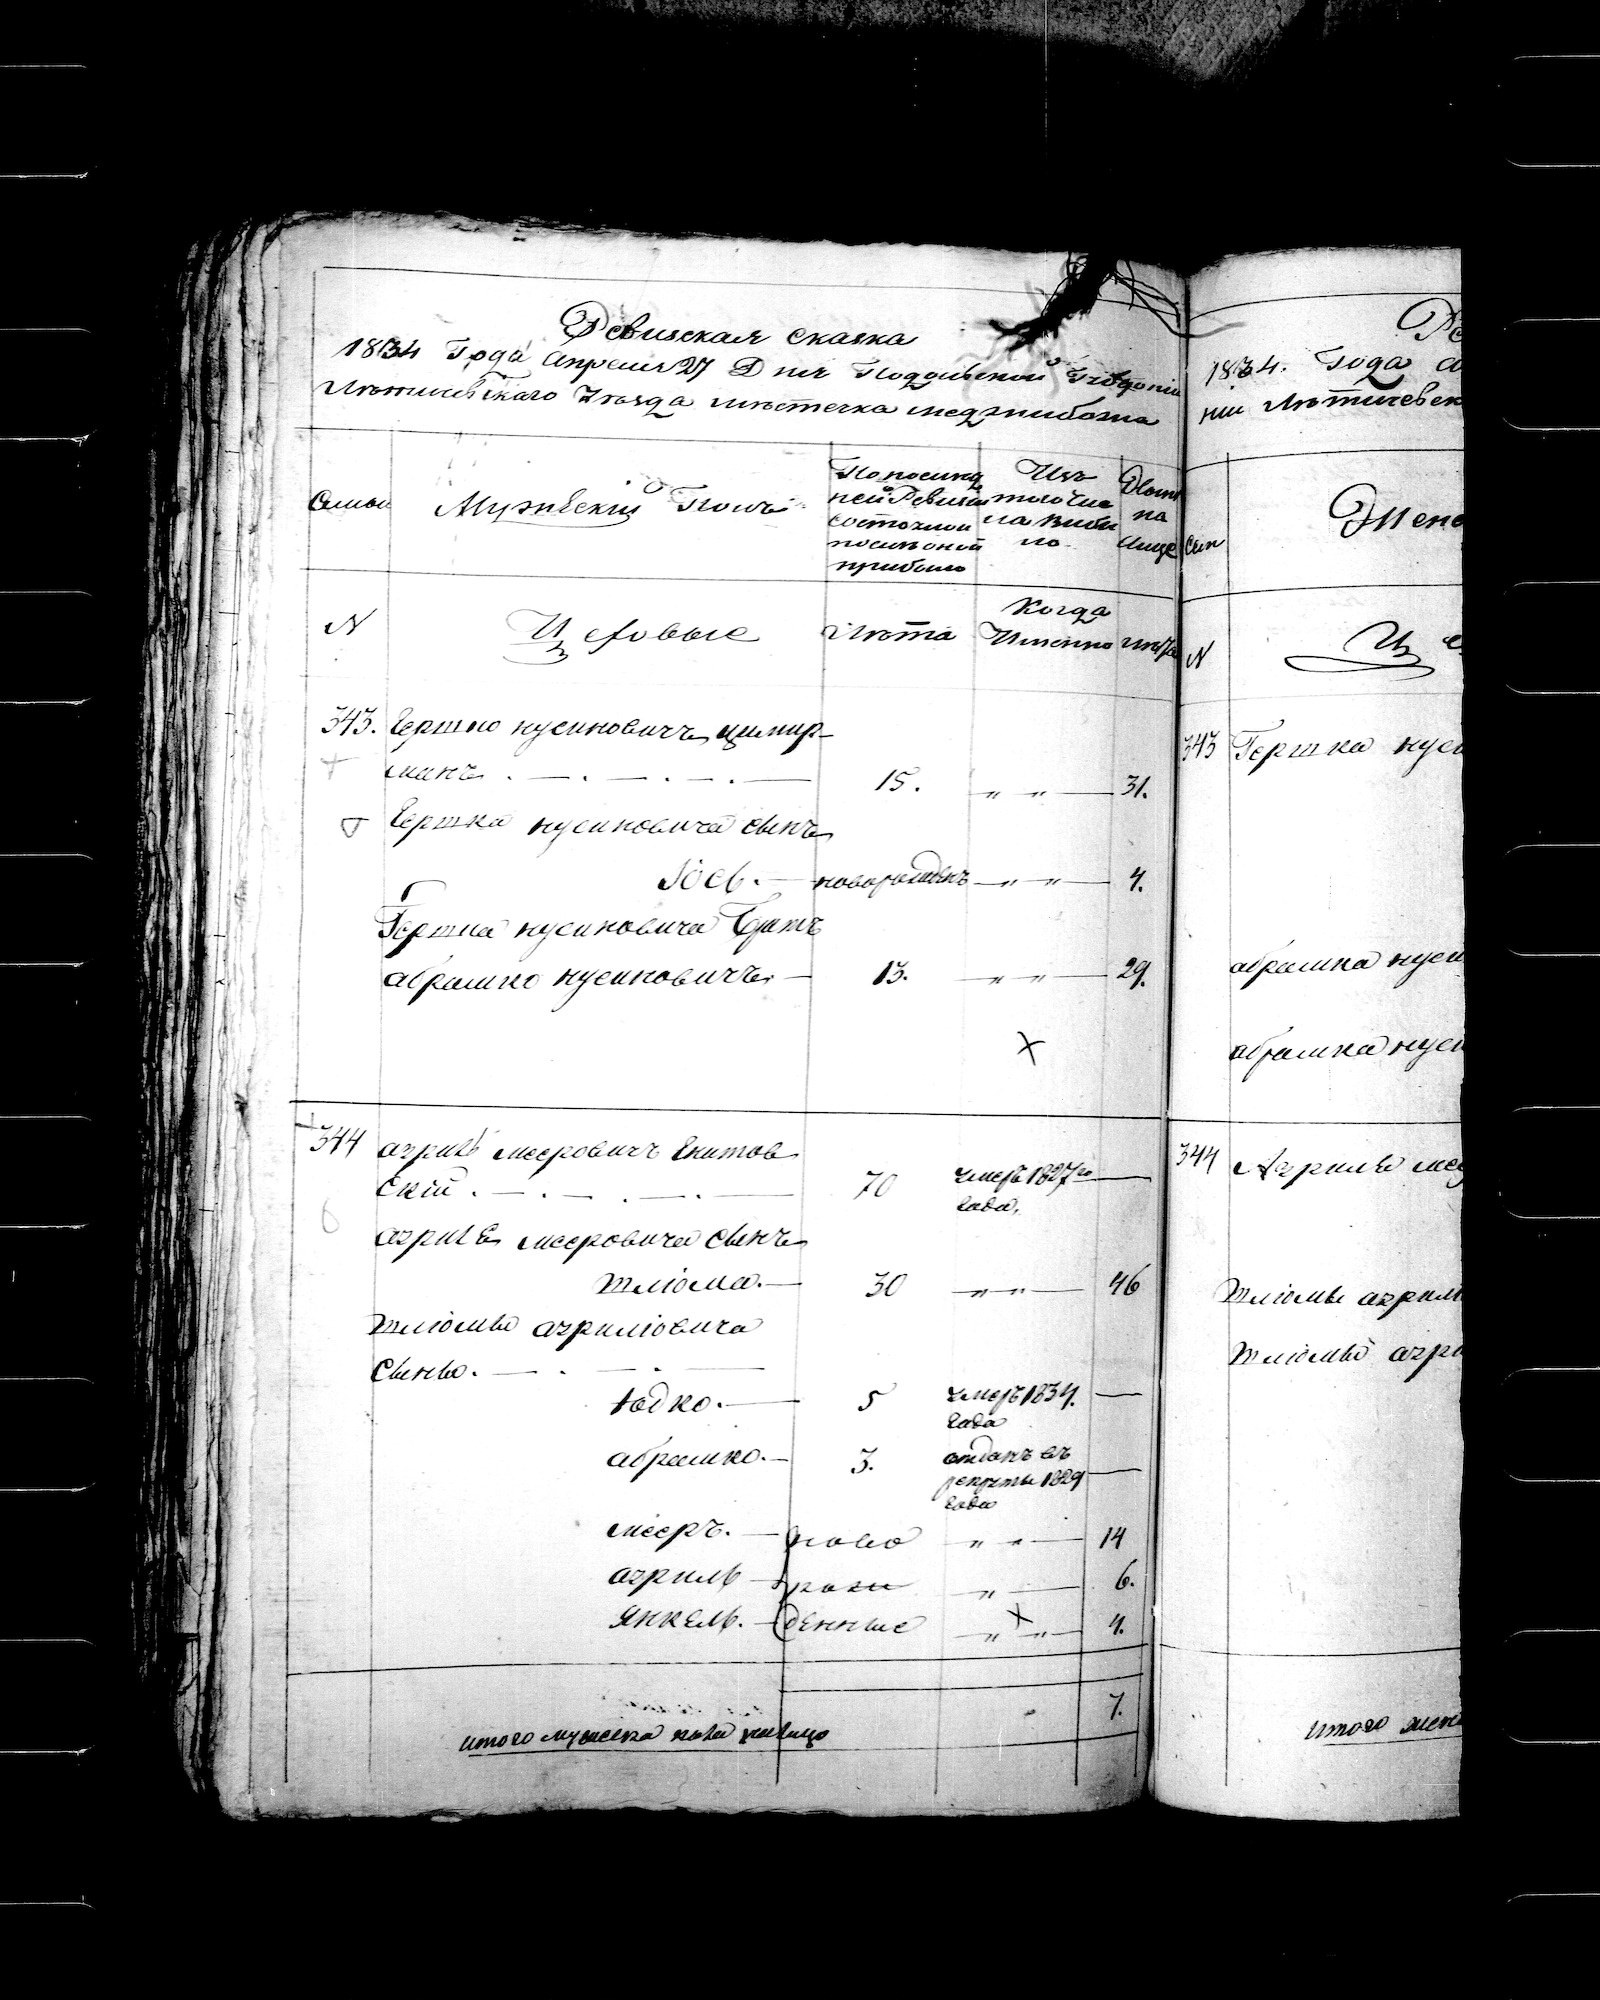 Ревизская сказка
1834 Года Апреля 27 Дня Подольской Губернiи
Лѣтичевскаго Уѣзда мѣстечка Меджибожа
Семьи
Мужескiй Полъ
По послѣд
ней Ревизiи
состояло и
послѣ оной
прибыло
Изъ
того чис
ла выбы
ло
Нынѣ
на
лице
N
Цеховые
Лѣта
Когда
Именно
лѣта
343. Гершко Нусиновичъ Цимир
манъ . — . — . — . — 15. " " — 31.
Гершка Нусиновича сынъ
Iось. — новорожденъ — " " — 4.
Гершка Нусиновича Братъ
Абрамко Нусиновичъ. — 13. " " — 29.
344 Азриль Мееровичъ
скiй . — . — . — . — 70 умеръ 1827го —
года.
Азриля Мееровича сынъ
Шлiома. — 30 " " — 46
Шлiомы Азрилiовича
Сыны. — . — . —
Юдко. — 5 умеръ 1834. —
года
Абрамко. — 3. отданъ въ
рекруты 1829 —
года
Мееръ. — ново " " — 14
Азриль — рож " — 6.
Янкель. — денные " " — 4.
7.
итого мужеска пола налицо
1834. Года
нiи Лѣтичевск
Сем
Женс
N
343 Гершка Нуси
Абрамка Нуси
Абрамка Нуси
344 Азриля Ме
Шлiомы Азрил
Шлiомы Азри
итого жен